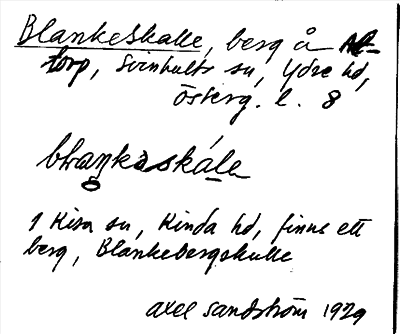 Blankeskalle, berg å
torp, Svinhults sn, Ydre hd,
Österg. l. 8
blrankaskále
I Kisa sn, Kinda hd, finns ett
berg, Blankebergskulle
Axel Sandström 1929